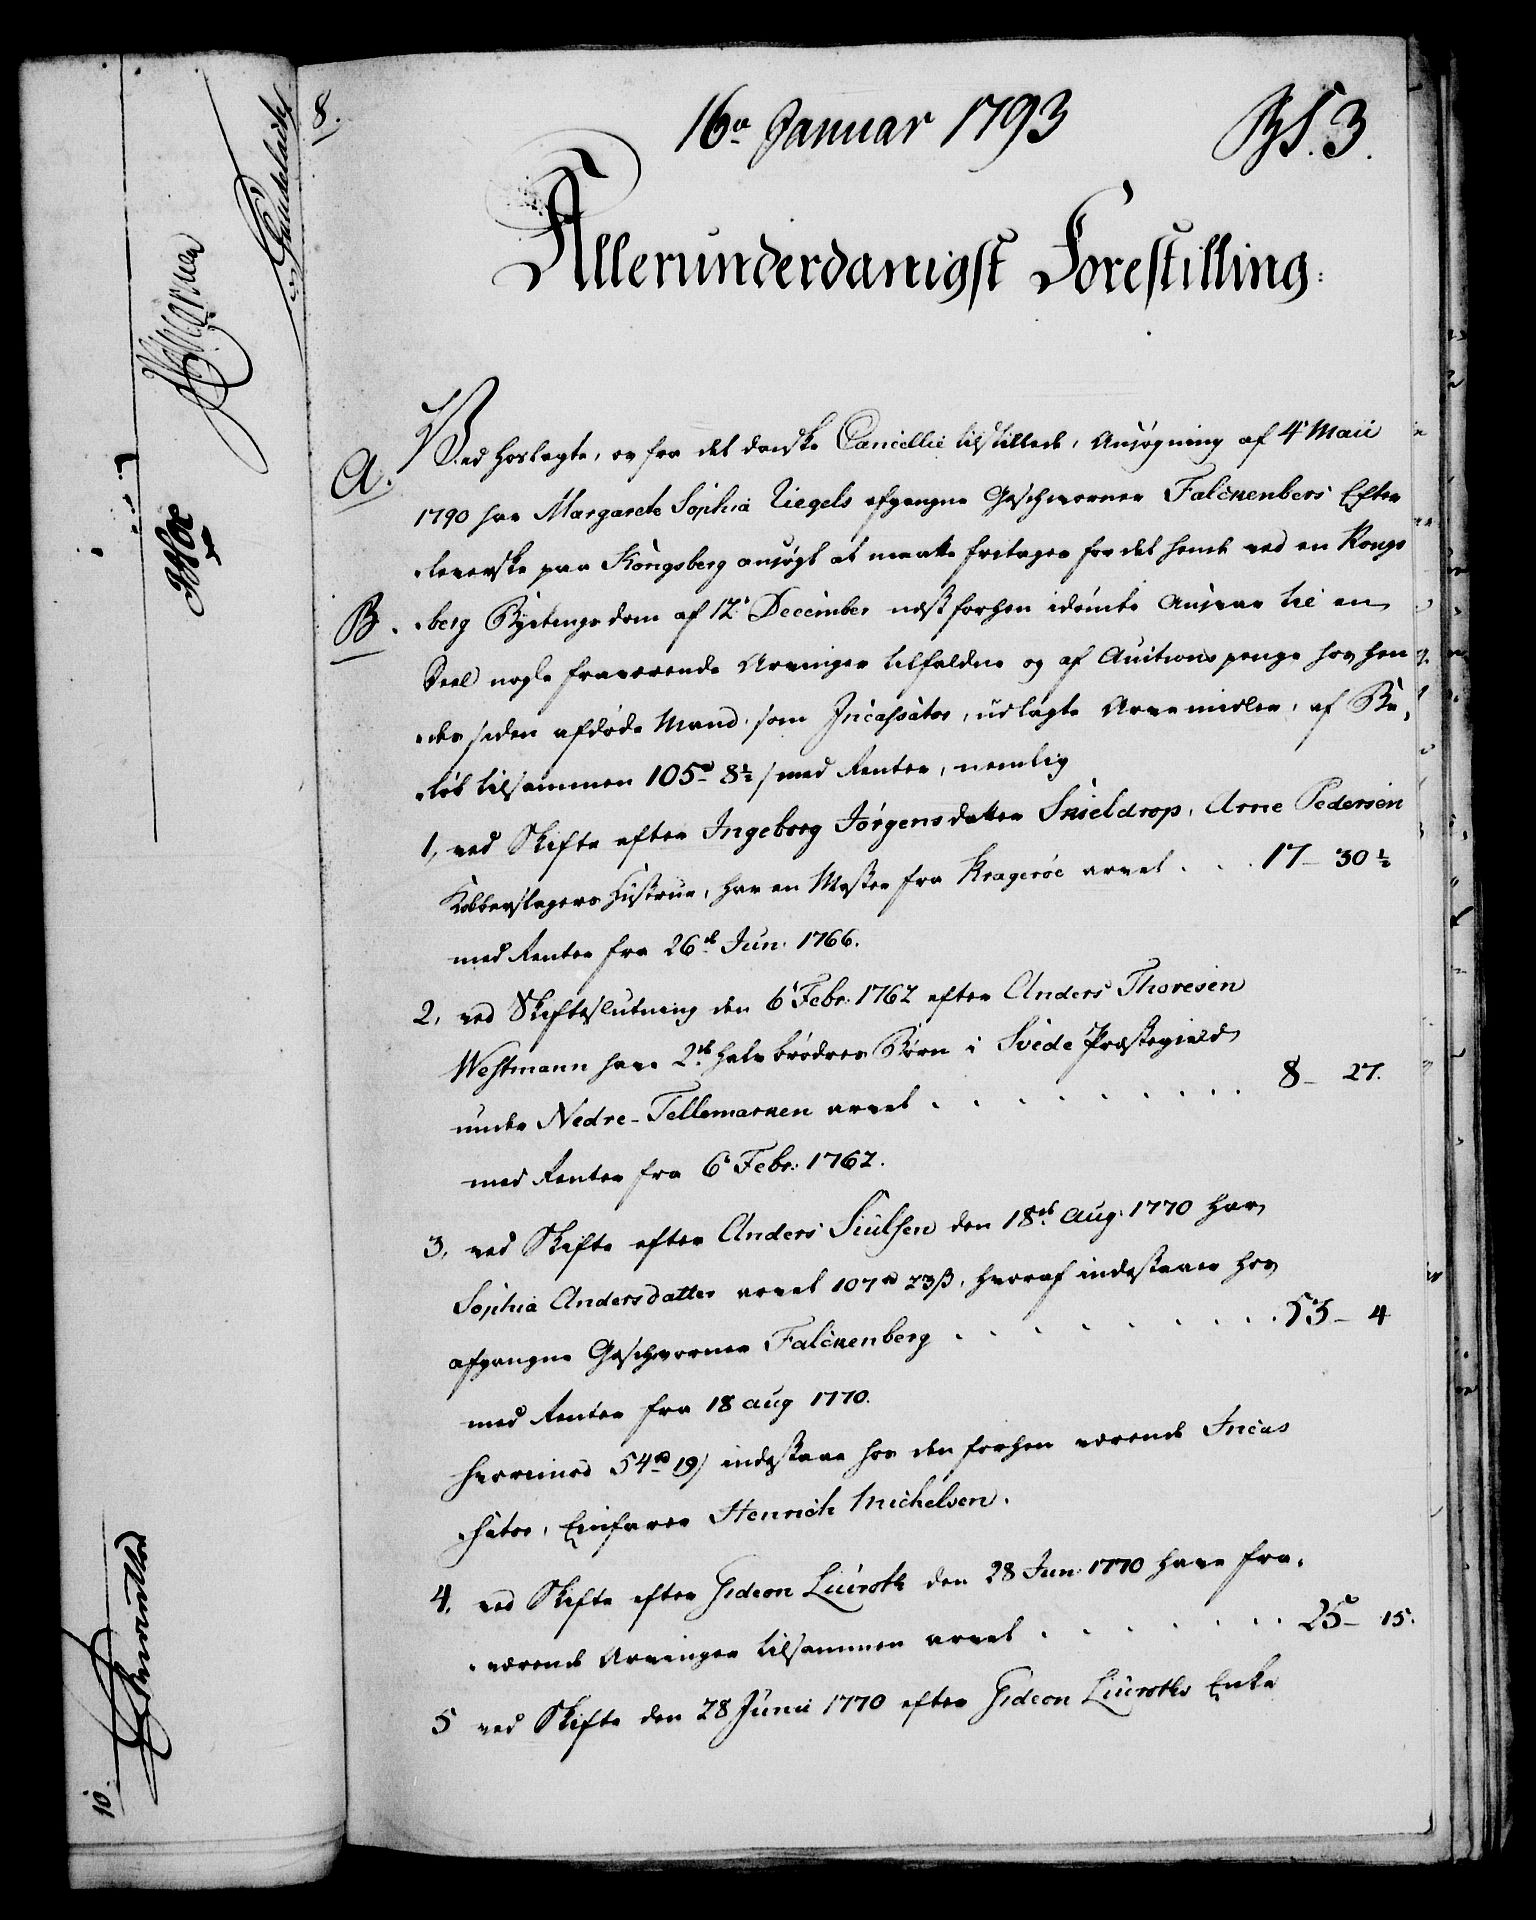 8.
16de Januar 1793
No 3.
Allerunderdanigst Forestilling:
A. Ved hoslagte, os fra det danske Cancellie tilstillede, Ansøgning af 4de Maii
1790 har Margarete Sophia Ziegels afgangne Geschworner Falckenbergs Efter
-leverske paa Kongsberg ansøgt at maatte fritages for det hende ved en Kongs
B. -berg Bytings dom af 12te December næstforhen idømte Ansvar til en
Deel nogle fraværende Arvinger tilfaldne og af Auctions penge hos hen
-des siden afdøde Mand, som Incassator, udlagte Arvemidler, af Be-
-løb tilsammen 105rd 8½ s med Renter, nemlig
1, ved Skifte efter Ingeborg Jørgensdatter Skieldrop, Arne Pedersen
Kobberslagers Hustrue, har en Mester fra Kragerøe arvet . . . 17 - 30½
med Renter fra 26de Jun: 1766.
2, ved Skifteslutning den 6te Febr: 1762 efter Anders Thoresen
Westmann have 2de halv brødres Børn i Svede Præstegield
under Nedre-Tellemarken arvet . . . . . . . . 8 - 27.
med Renter fra 6te Febr: 1762.
3, ved Skifte efter Anders Siulsen den 18de Aug: 1770 har
Sophia Andersdatter arvet 107rd 23ß, hvoraf indestaaer hos
afgangne Geschworner Falckenberg . . . . . . . . 53 - 4
med Renter fra 18 aug 1770.
hvorimod 54rd 19 s indestaae hos den forhen værende Incas
-sator, Einfarer Henrich Michelsen.
4, ved Skifte efter Gideon Liuroth den 28 Jun: 1770 have fra-
-værende Arvinger tilsammen arvet . . . . . . . 25 - 15.
5 ved Skifte den 28 Junii 1770 efter Gideon Liuroths Enke
10.